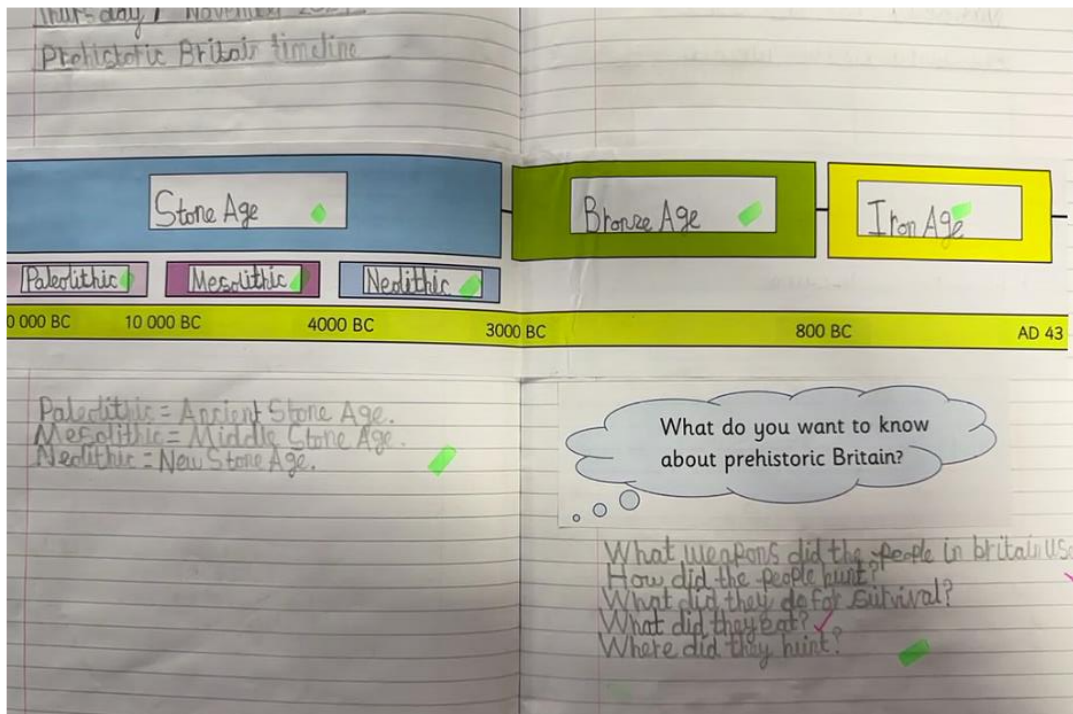 Thursday 7 November
Prehistoric Britain timeline
Stone Age
Bronze Age
Iron Age
Paleolithic
Mesolithic
Neolithic
0 000 BC
10 000 BC
4000 BC
3000 BC
800 BC
AD 43
Paleolithic = Ancient Stone Age.
Mesolithic = Middle Stone Age.
Neolithic = New Stone Age.
What do you want to know
about prehistoric Britain?
What weapons did the people in britain us
How did the people hunt?
What did they do for survival?
What did they eat?
Where did they hunt?